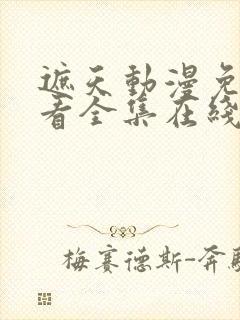 遮天動漫免
看全集在綫
梅賽德斯-奔馳